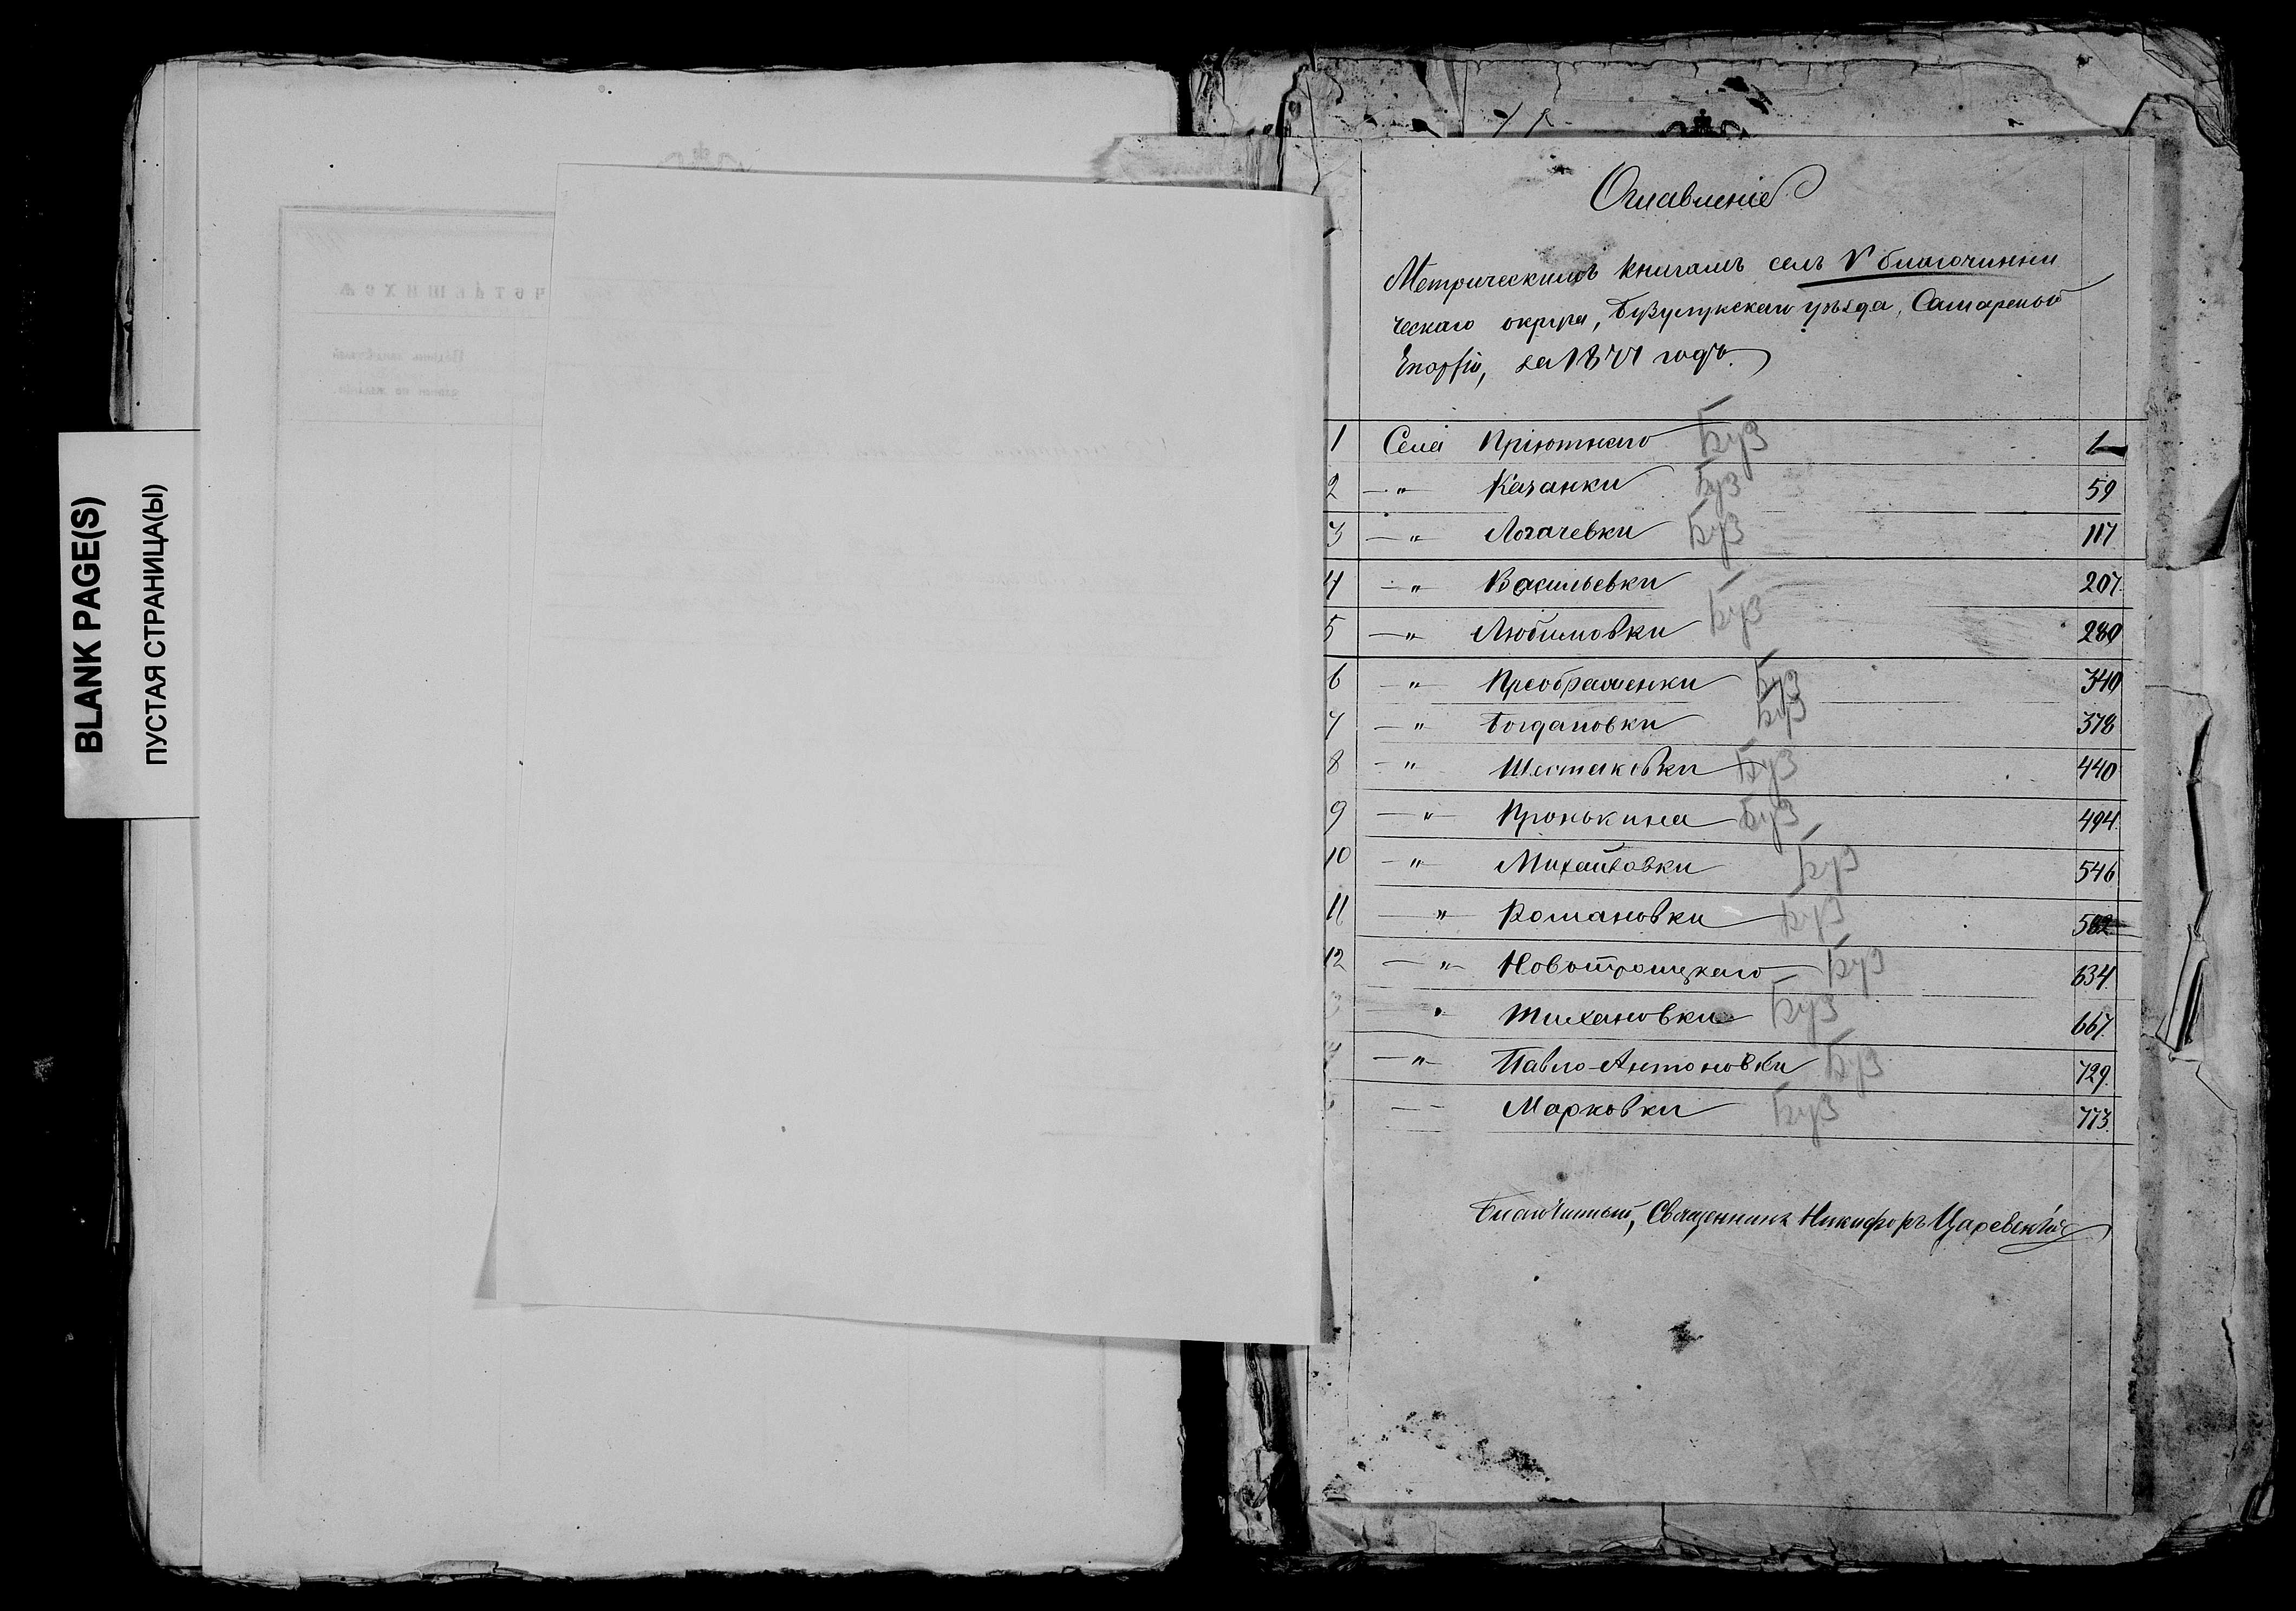 BLANK PAGE(S)
ПУСТАЯ СТРАНИЦА(Ы)
Оглавленіе
Метрическимъ книгамъ селъ V благочинни
ческаго округа, Бузулукскаго уѣзда, Самарской
Епархіи, за 1871 годъ.
1 Села Пріютнаго Буз 1
2 — " Качанки Буз 59
3 — " Логачевки Буз 117
4 — " Васильевки 207.
5 — " Любимовки Буз 280
6 — " Преображенки Буз 340
7 — " Богдановки Буз 378
8 — " Шестаковки Буз 440
9 — " Пронькина Буз 494.
10 — " Михайловки Буз 546
11 — " Романовки Буз 582
12 — " Новотроицкаго Буз 634.
3 — " Тихановки Буз 667.
— " Павло-Антоновки Буз 729.
— — Марковки Буз 773.
Благочинный, Священникъ Никифоръ Царевскій